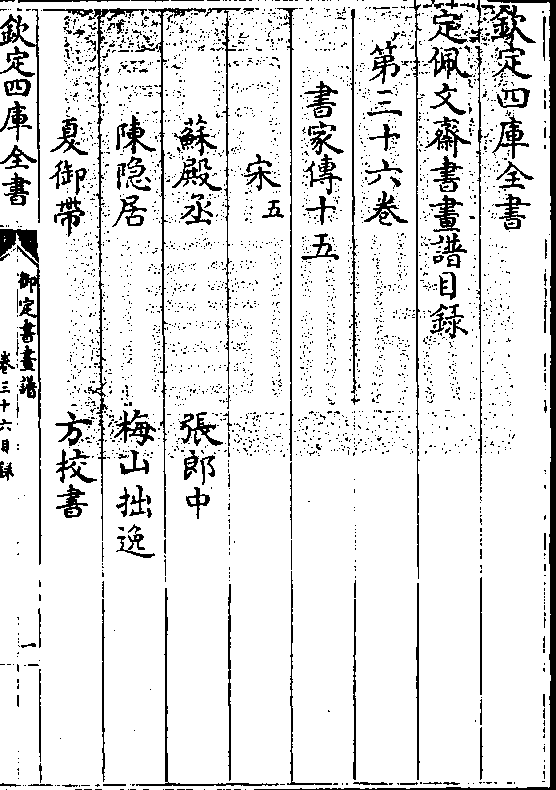 欽定四庫全書
定佩文齋書畫譜目録
第三十六卷
書家傳十五
宋五
蘇殿丞 張郎中
陳隐居 梅山拙逸
夏御帶 方校書
欽定四庫全書
御定書畫譜
卷三十六目録
一